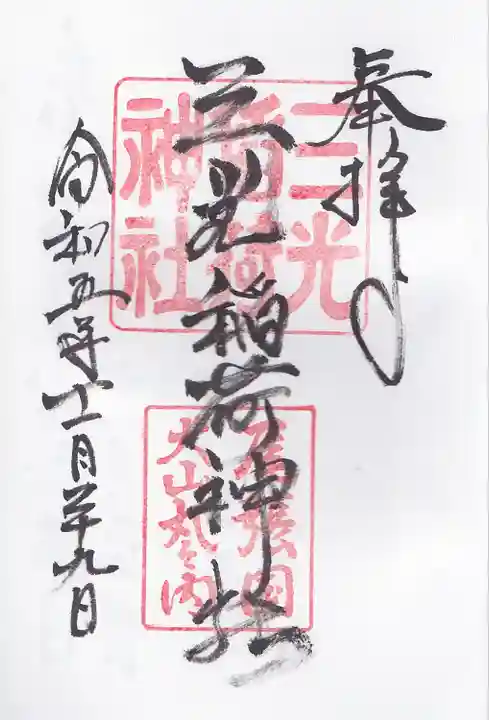 奉拝
三光稲荷神社
三光
稲荷
神社
尾張国
犬山丸之内
令和五年十一月二十九日